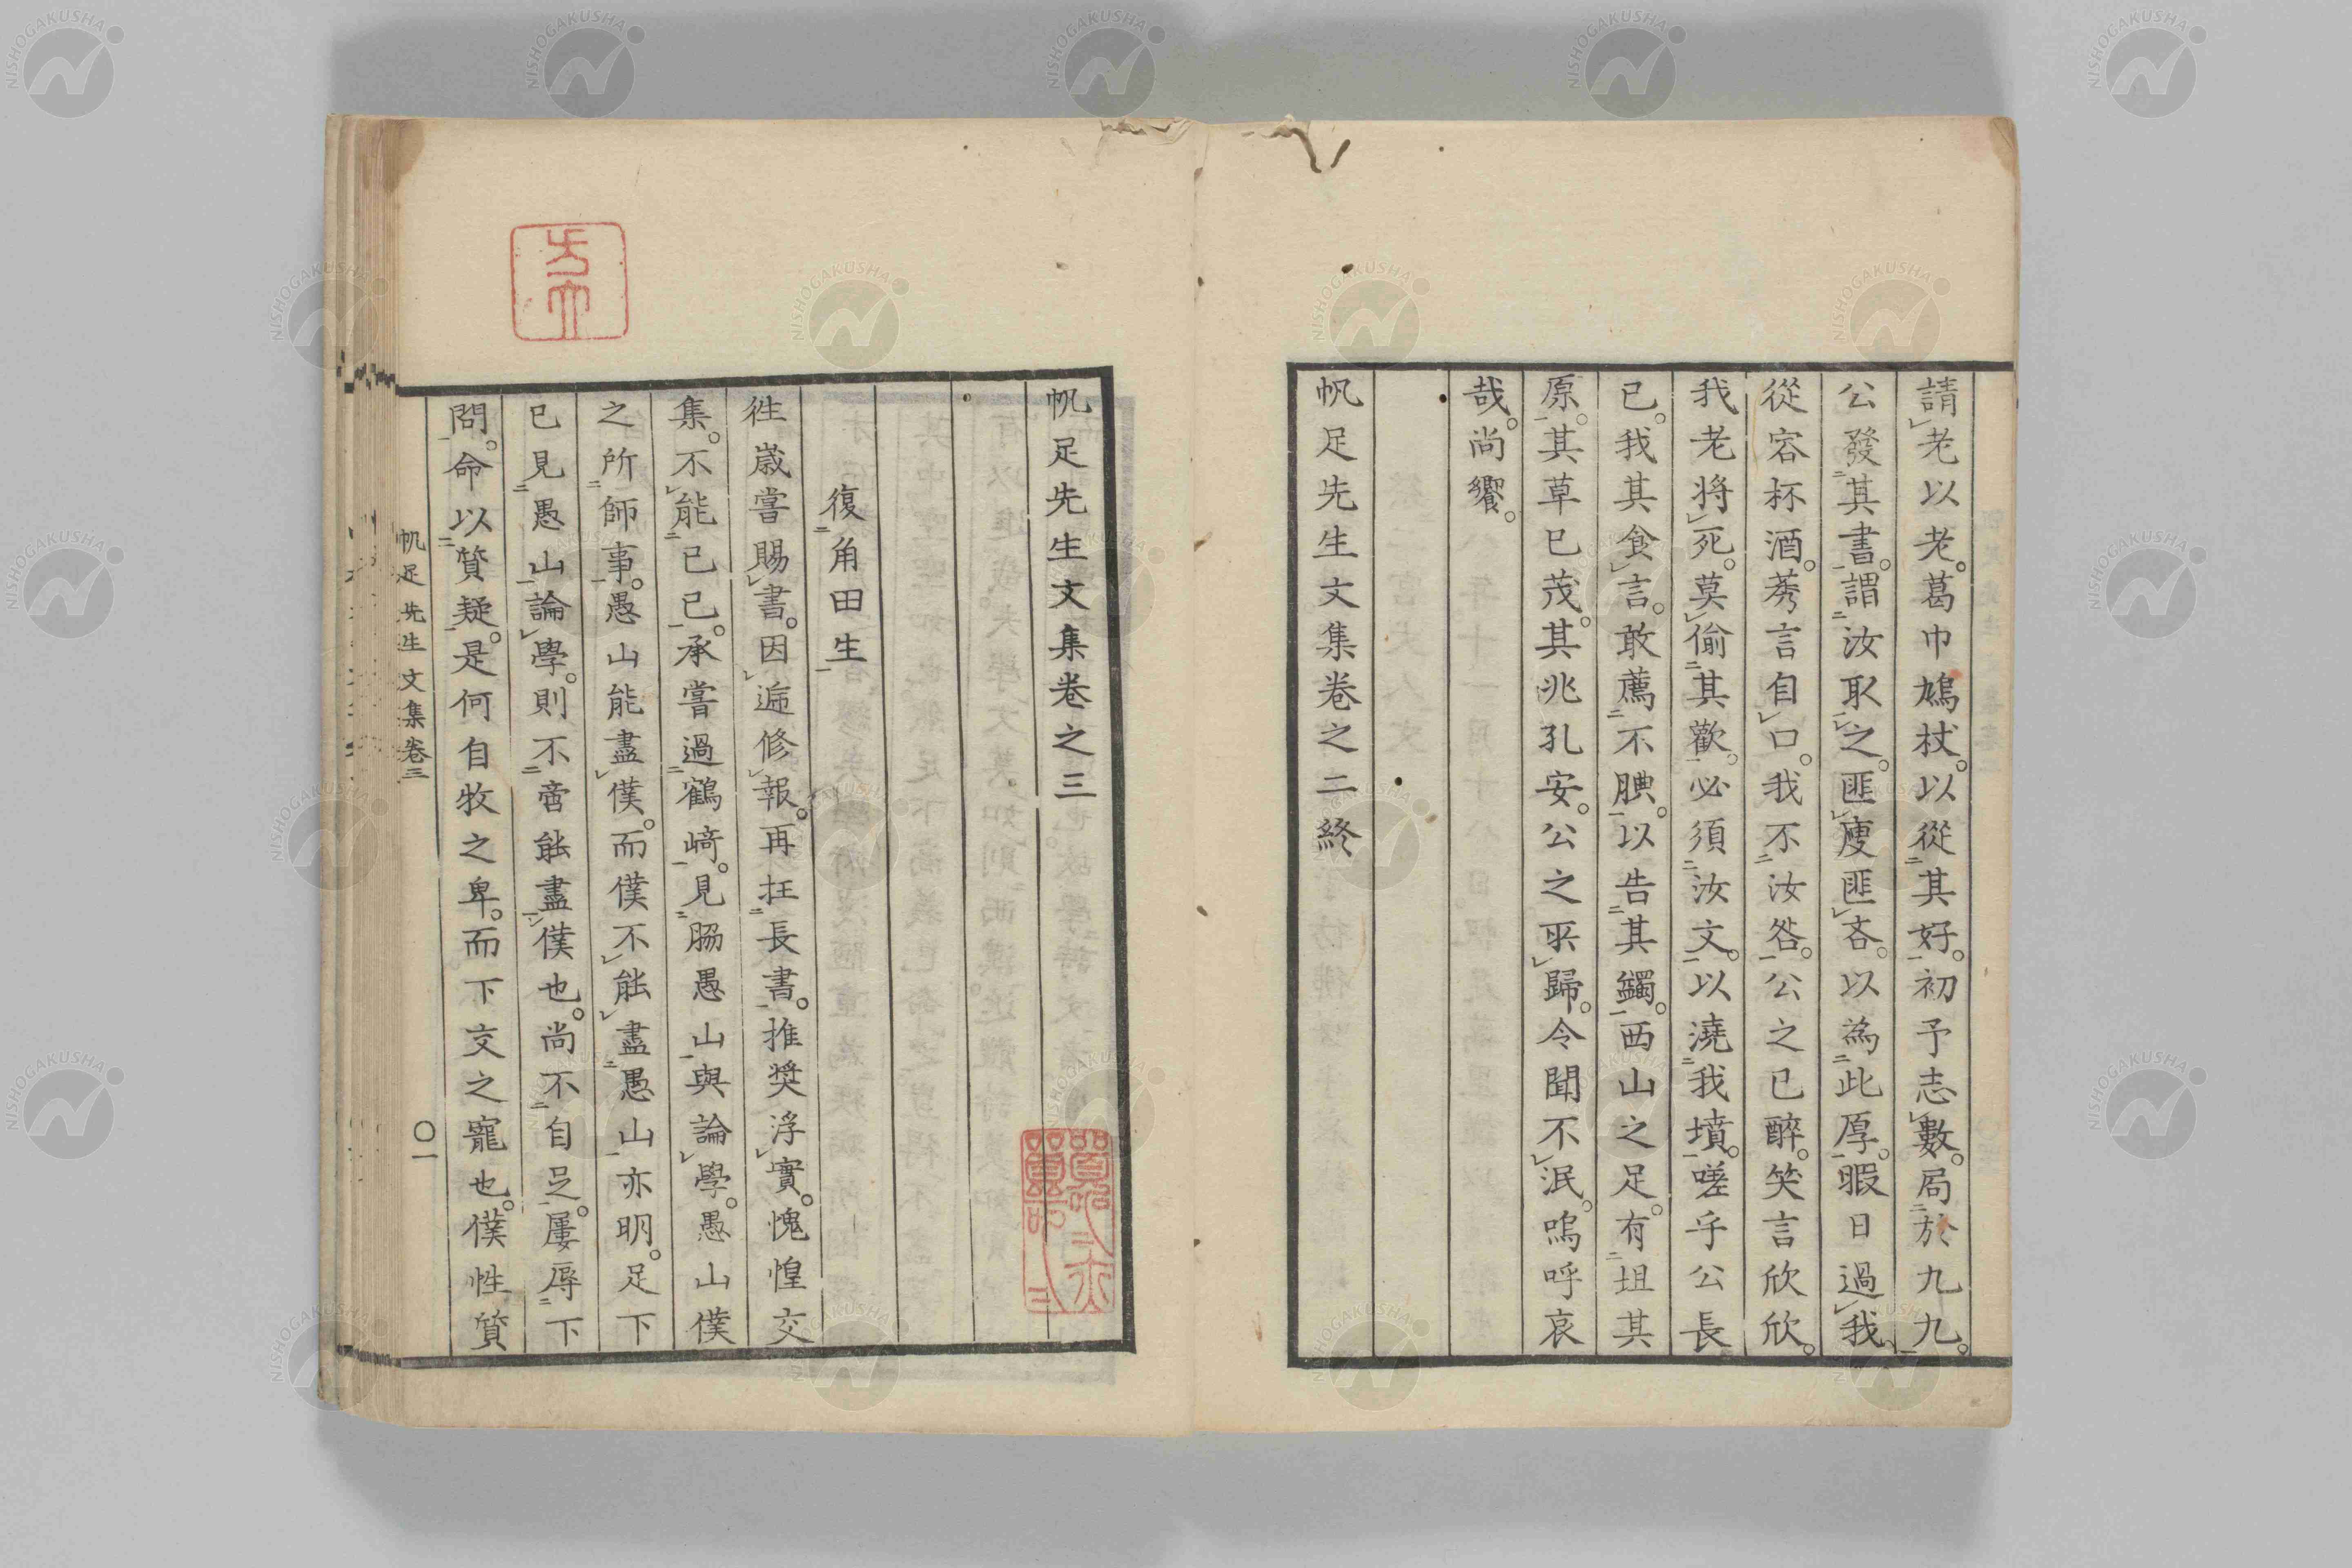 請老以老。葛巾鳩杖。以從其好。初予志數。局於九九。
公發其書。謂汝取之。匪廋匪吝。以為此厚。暇日過我、
從容杯酒。莠言自口。我不汝咎。公之已醉。笑言欣欣。
我老將死。莫偷其歡。必須汝文。以澆我墳。嗟乎公長
已。我其食言。敢薦不腆。以告其蠲。西山之足。有坦其
原。其草已茂。其兆孔安。公之罙歸。令聞不泯。嗚呼哀
哉。尚饗。
帆足先生文集卷之二終
帆足先生文集卷之三
復角田生
徃歲嘗賜書。因循修報。再抂長書。推奨浮實。愧惶交
集。不能已已。承嘗過鶴﨑。見脇愚山與論學。愚山僕
之所師事。愚山能盡僕。而僕不能盡愚山亦明。足下
已見愚山論學。則不啻能盡僕也。尚不自足。屢辱下
問。命以質疑。是何自牧之卑。而下交之寵也。僕性質
帆足先生文集卷三
〇一
NISHOGAKUSHA